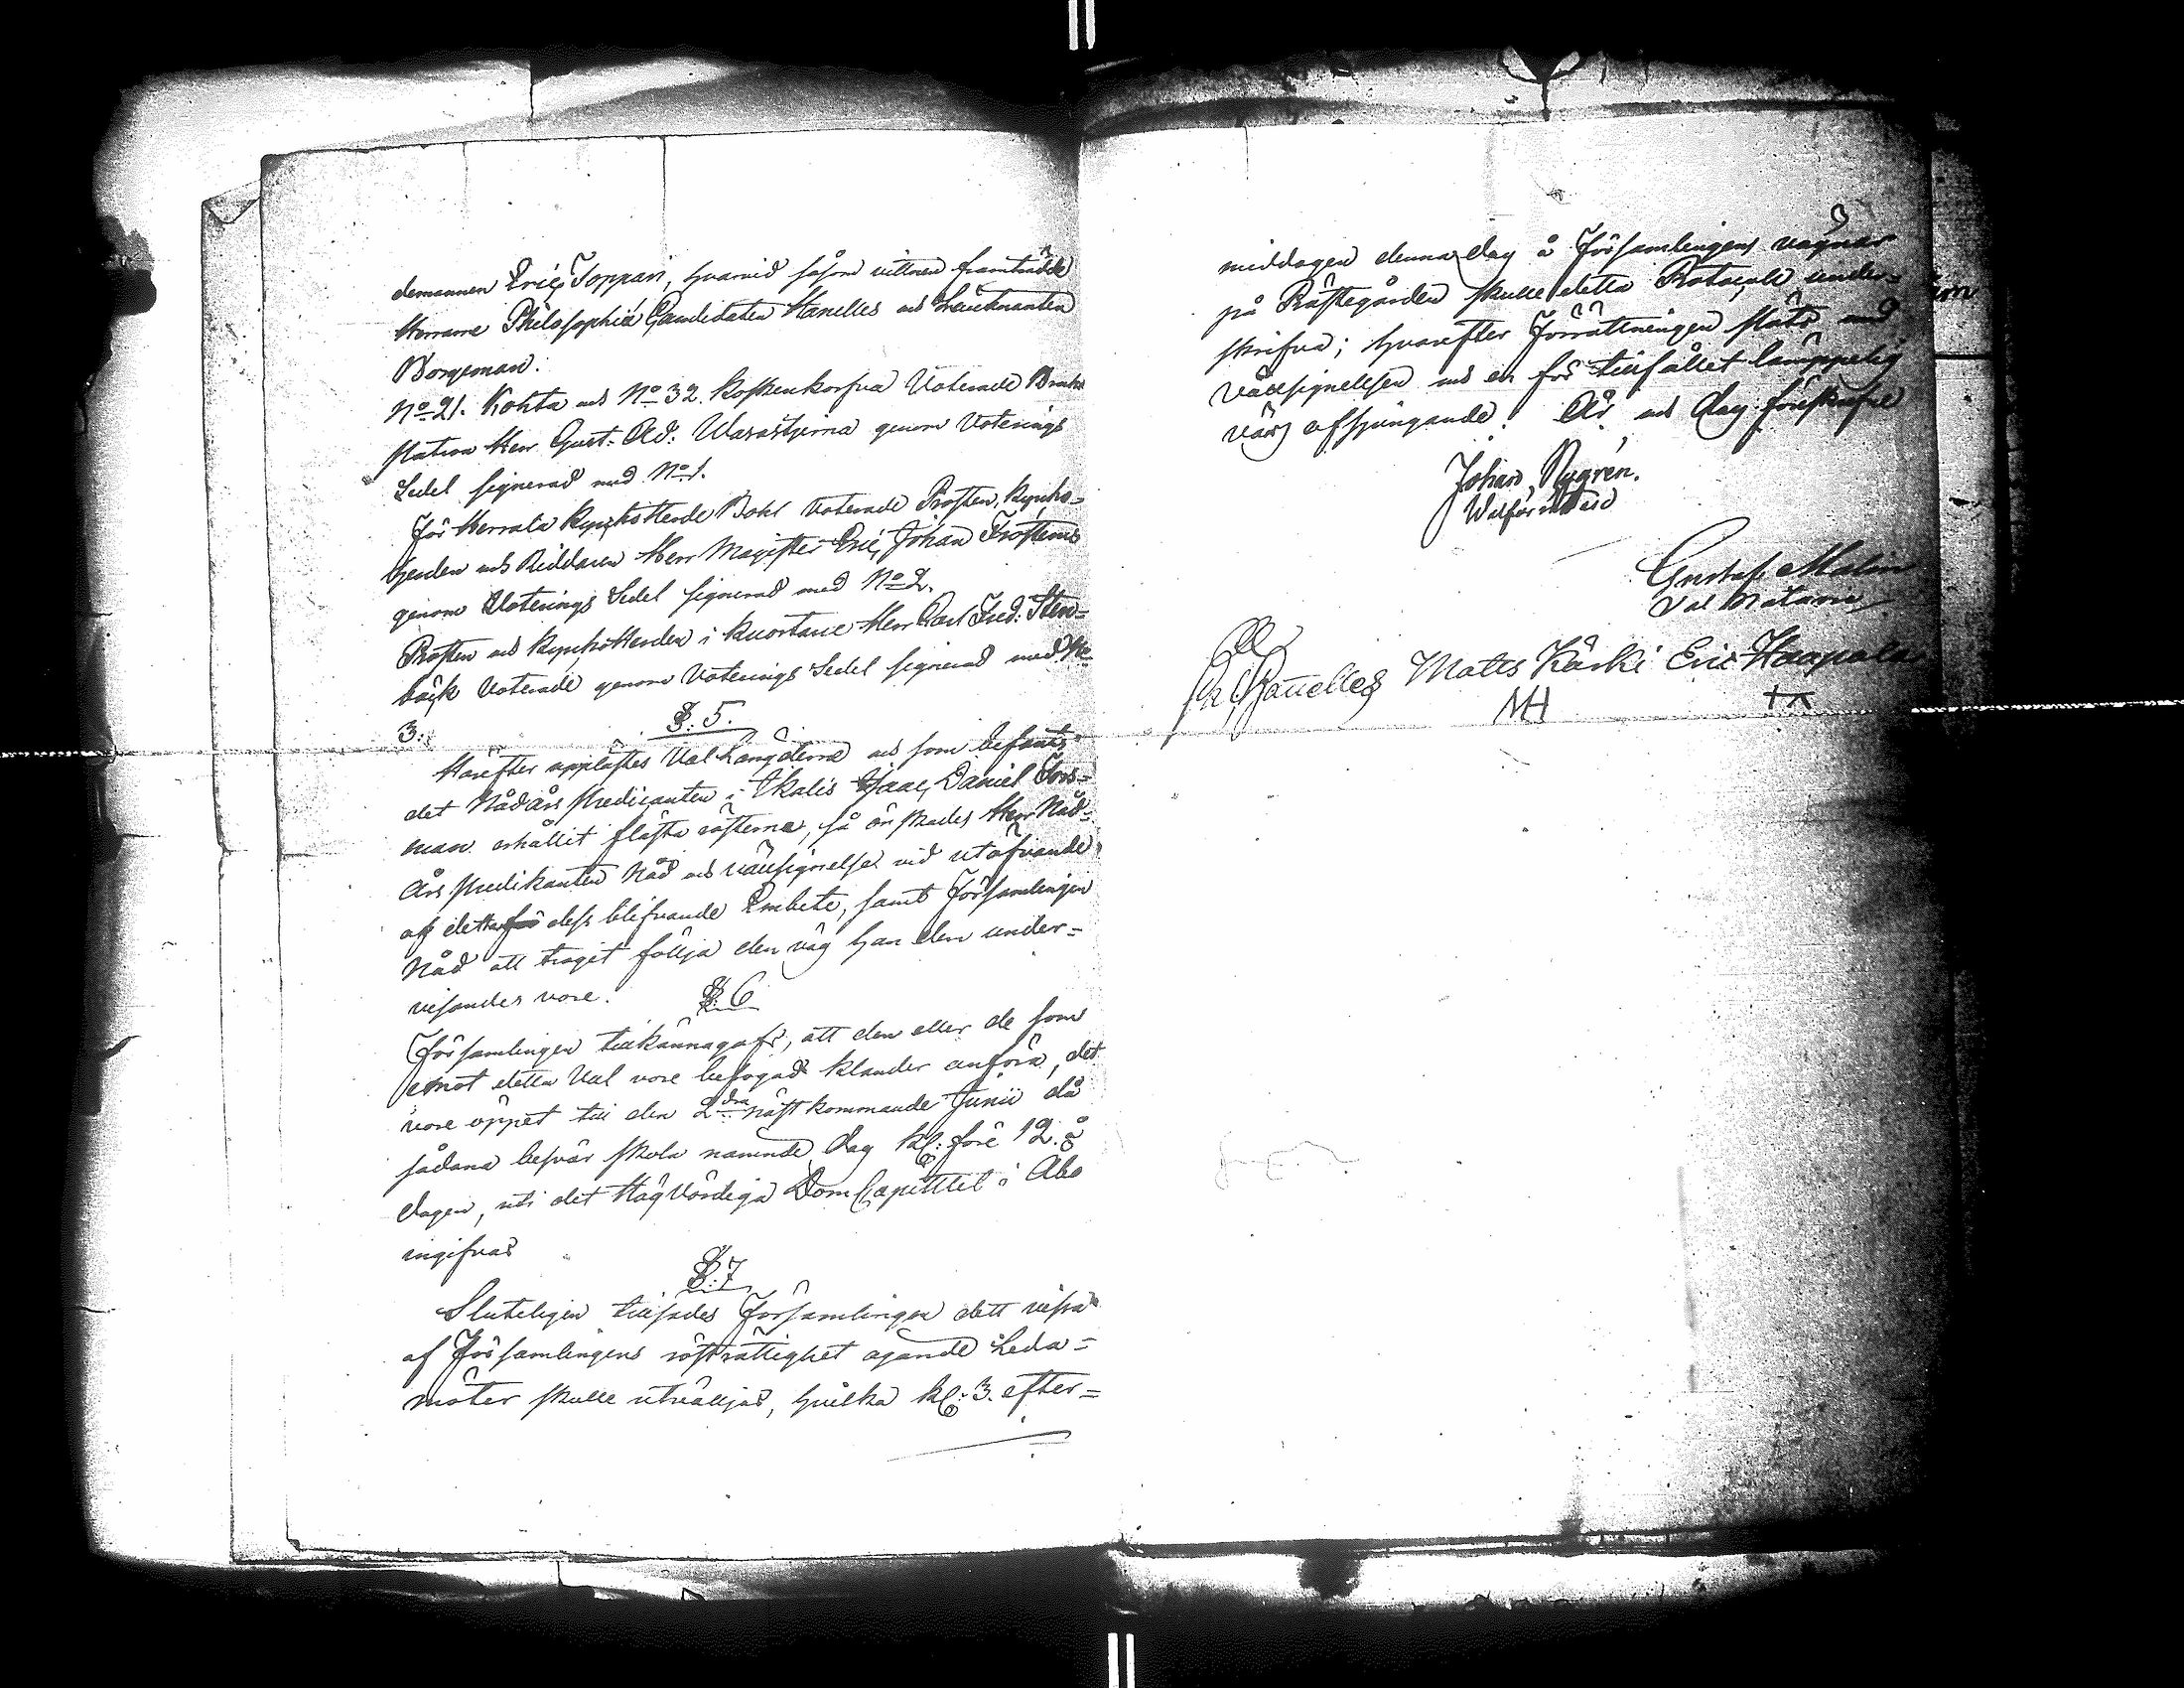 demannen Eric Toppari, hvarvid såsom vittnen framträdde
Herrarne Philosophiæ Candidaten Hanelles och Lieutnanten
Borgeman.
No 21. Kohta och No 32. Koskenkorfva Voterade Bruks
Herr Gust. Ad. Wasastjerna genom Voterings
Sedel signerad med No 1.
För Herrala Kyrkoherde Bohl Voterade Prosten, Kyrko-
herden och Riddaren Herr Magister Eric Johan Frosterus
genom Voterings Sedel signerad med No 2.
Prosten och Kyrkoherden i Kuortane Herr Carl Fred: Sten-
bäck Voterade genom Voterings Sedel signerad med No
3.
§: 5.
Härefter upplästes Val Längderna och som befants
det Nådårs Predicanten i Ikalis Isaac Daniel Fors-
man erhållit flästa rösterna, så önskades Herr Nåd-
års Predikanten Nåd och välsignelse vid utöfvande
af detta dess blifvande Embete, samt Församlingen
Nåd att troget följa den väg han den under-
visandes vore.
§: 6
Församlingen tillkännagafs, att den eller de som
emot detta Val vore befogad klander anföra, det
vore öppet till den 2dra nästkommande Junii då
sådana besvär skola namnde dag kl: före 12. å
dagen, uti det Högvördiga Dom Capittlet i Åbo
ingifvas
§: 7
Sluteligen tillsades Församlingen att vissa
af Församlingens rösträttighet ägande Leda-
möter skulle utväljas, hvilka kl: 3. efter-
middagen denna dag å Församlingens vägnar
på Prästegården skulle detta Protocoll under-
skrifva; hvarefter Förrättningen slöts med
välsignelsen och en för tillfället lämppelig
värs afsjungande. År och dag föreskrifne
Johan Nygrén.
Valförrättare
Gustaf Malin
Val Notarie
Hanelles Matts Kärki Eric Haapala
MH